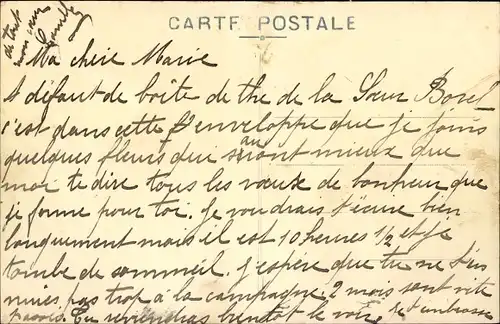 CARTE POSTALE
Ma chère Marie
A défaut de boîte de thé de la Sœur Borel
c'est dans cette enveloppe que je joins
quelques fleurs qui sauront mieux que
moi te dire tous les vœux de bonheur que
je forme pour toi. Je voudrais t'écrire bien
longuement mais il est 10 heures 1/2 et je
tombe de sommeil. J'espère que tu ne t'en
nuies pas trop à la campagne, 2 mois sont vite
passés. Tu reviendras bientôt le voir. Je t'embrasse
de tout
mon cœur